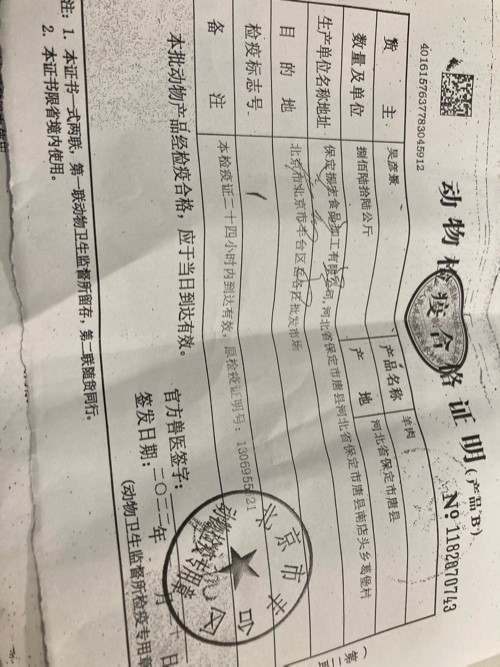 动物检疫合格证明(产品B)
4016157637783045912
№ 1182070743
货主 吴彦景 产品名称 羊肉
数量及单位 捌佰陆拾陆公斤 产地 河北省保定市唐县
生产单位名称地址 保定振宏食品加工有限公司,河北省保定市唐县河北省保定市唐县南店头乡葛堡村
目的地 北京市北京市丰台区岳各庄批发市场
检疫标志号
备注 本检疫证二十四小时内到达有效。原检疫证明号:1306955
本批动物产品经检疫合格,应于当日到达有效。
官方兽医签字:
签发日期:二〇二二年 月 日
(动物卫生监督所检疫专用章
注:1. 本证书一式两联,第一联动物卫生监督所留存,第二联随货同行。
2. 本证书限省境内使用。
北京市丰台区
(第二